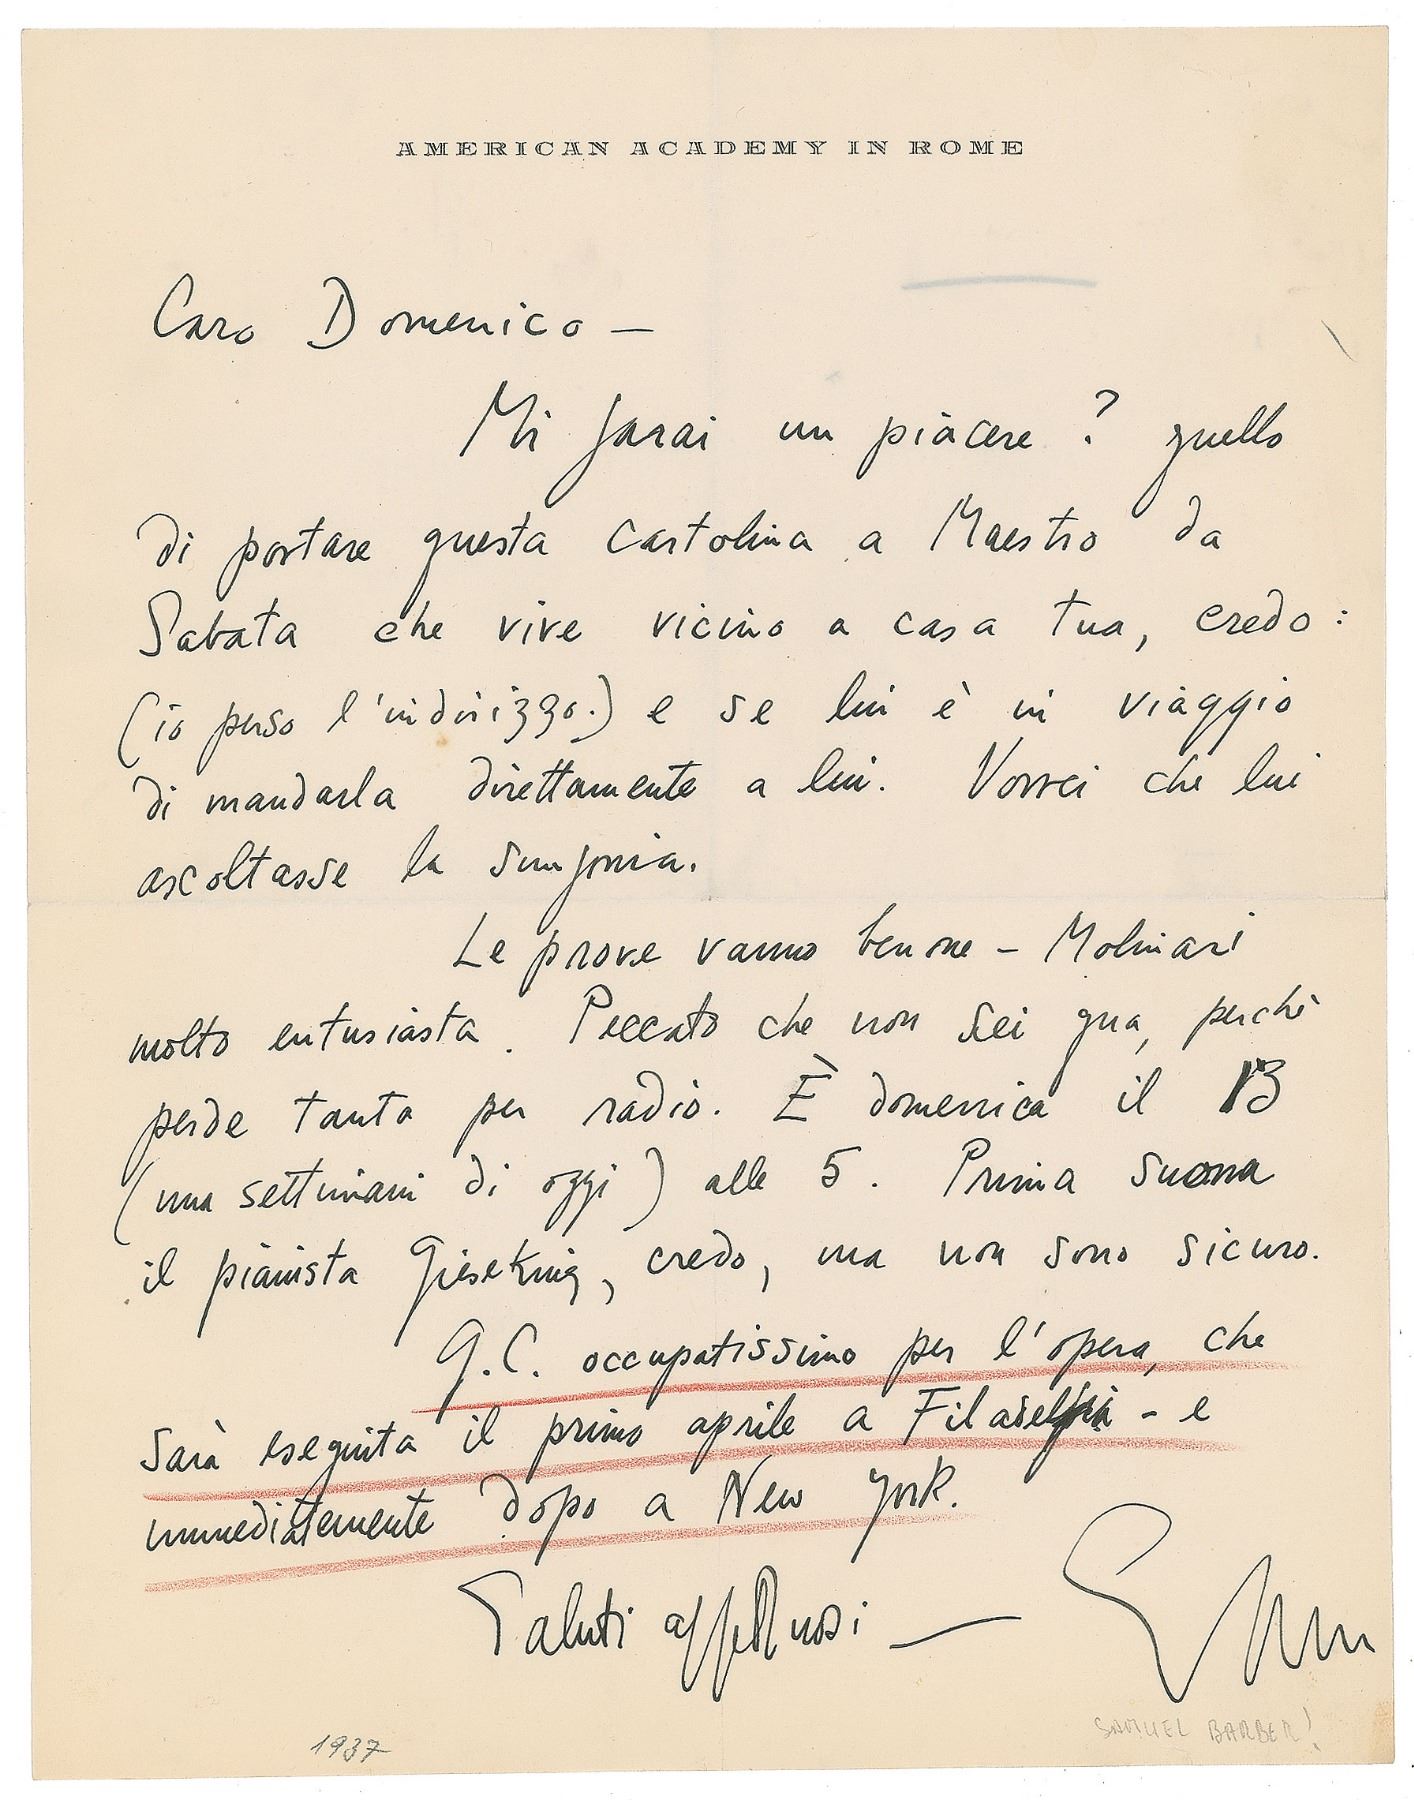 AMERICAN ACADEMY IN ROME
Caro Domenico —
Mi farai un piacere? quello
di portare questa cartolina a Maestro da
Sabata che vive vicino a casa tua, credo:
(io perso l'indirizzo.) e se lui è in viaggio
di mandarla direttamente a lui. Vorrei che lui
ascoltasse la sinfonia.
Le prove vanno benone – Molinari
molto entusiasta. Peccato che non sei qua, perchè
perde tanta per radio. È domenica il 13
(una settimani di oggi) alle 5. Prima suona
il pianista Gieseking, credo, ma non sono sicuro.
G.C. occupatissimo per l'opera, che
sarà eseguita il primo aprile a Filadelfia - e
immediatemente dopo a New York.
Saluti affettuosi — Sam
1937
SAMUEL BARBER!